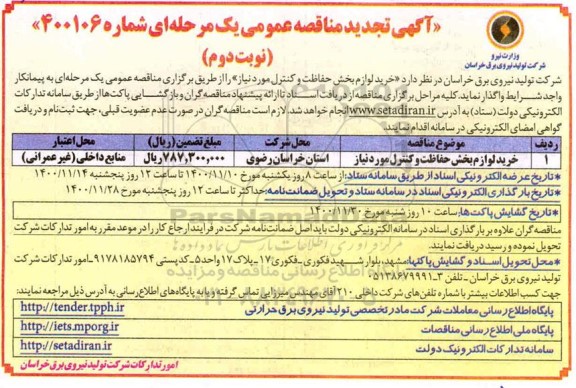 «آگهی تجدید مناقصه عمومی یک مرحله‌ای شماره ۴۰۰۱۰۶»
(نوبت دوم)
وزارت نیرو
شرکت تولید نیروی برق خراسان
شرکت تولید نیروی برق خراسان در نظر دارد «خرید لوازم بخش حفاظت و کنترل مورد نیاز» را از طریق برگزاری مناقصه عمومی یک مرحله‌ای به پیمانکار
واجد شرایط واگذار نماید. کلیه مراحل برگزاری مناقصه از دریافت اسناد تا ارائه پیشنهاد مناقصه گران و بازگشایی پاکت‌ها از طریق سامانه تدارکات
الکترونیکی دولت (ستاد) به آدرس www.setadiran.ir انجام خواهد شد. لازم است مناقصه گران در صورت عدم عضویت قبلی، جهت ثبت نام و دریافت
گواهی امضای الکترونیکی در سامانه اقدام نمایند.
ردیف موضوع مناقصه محل شرکت مبلغ تضمین (ریال) محل اعتبار
۱ خرید لوازم بخش حفاظت و کنترل مورد نیاز استان خراسان رضوی ۷۸۷,۳۰۰,۰۰۰ ریال منابع داخلی (غیر عمرانی)
*تاریخ عرضه الکترونیکی اسناد از طریق سامانه ستاد: از ساعت ۸ روز یکشنبه مورخ ۱۴۰۰/۱۱/۱۰ تا ساعت ۱۲ روز پنجشنبه ۱۴۰۰/۱۱/۱۴
*تاریخ بارگذاری الکترونیکی اسناد در سامانه ستاد و تحویل ضمانت‌نامه: حداکثر تا ساعت ۱۲ روز پنجشنبه مورخ ۱۴۰۰/۱۱/۲۸
*تاریخ گشایش پاکت‌ها: ساعت ۱۰ روز شنبه مورخ ۱۴۰۰/۱۱/۳۰
مناقصه گران علاوه بر بارگذاری اسناد در سامانه الکترونیکی دولت باید اصل ضمانت‌نامه شرکت در فرایند ارجاع کار را در موعد مقرر به امور تدارکات شرکت
تحویل نموده و رسید دریافت نمایند.
*محل تحویل اسناد و گشایش پاکتها: مشهد، بلوار شهید فکوری-فکوری ۱۷-پلاک ۱۷ واحد ۵-کدپستی ۹۱۷۸۱۸۵۷۹۴-امور تدارکات شرکت
تولید نیروی برق خراسان - تلفن ۳-۰۵۱۳۸۶۷۹۹۹۱
جهت کسب اطلاعات بیشتر با شماره تلفن‌های شرکت داخلی ۲۱۰ آقای مهندس میرزایی تماس گرفته و یا به پایگاه‌های اطلاع رسانی به آدرس ذیل مراجعه نمایند:
پایگاه اطلاع رسانی معاملات شرکت مادر تخصصی تولید نیروی برق حرارتی http://tender.tpph.ir
پایگاه ملی اطلاع رسانی مناقصات http://iets.mporg.ir
سامانه تدارکات الکترونیک دولت http://setadiran.ir
امور تدارکات شرکت تولید نیروی برق خراسان